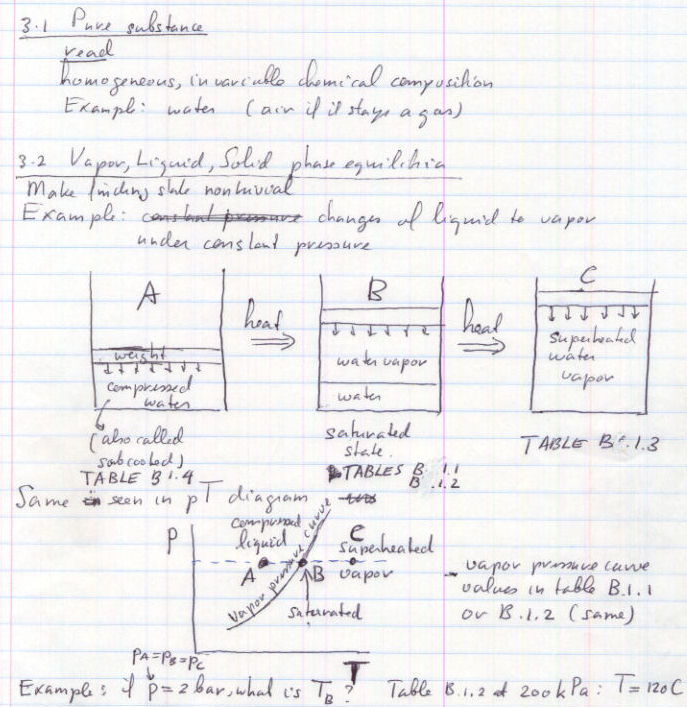 3.1 Pure substance
read
homogeneous, invariable chemical composition
Example: water (air if it stays a gas)
3.2 Vapor, Liquid, Solid phase equilibria
Make finding state nontrivial
Example: constant pressure changes of liquid to vapor
under constant pressure
A
heat
B
heat
C
weight
compressed
water
water vapor
water
superheated
water
vapor
(also called
subcooled)
TABLE B.1.4
saturated
state.
TABLES B.1.1
B.1.2
TABLE B.1.3
Same seen in pT diagram
P
compressed
liquid
A
Vapor pressure curve
B
saturated
C
superheated
vapor
vapor pressure curve
values in table B.1.1
or B.1.2 (same)
T
PA=PB=PC
Example: if p=2 bar, what is TB? Table B.1.2 at 200 kPa: T=120C